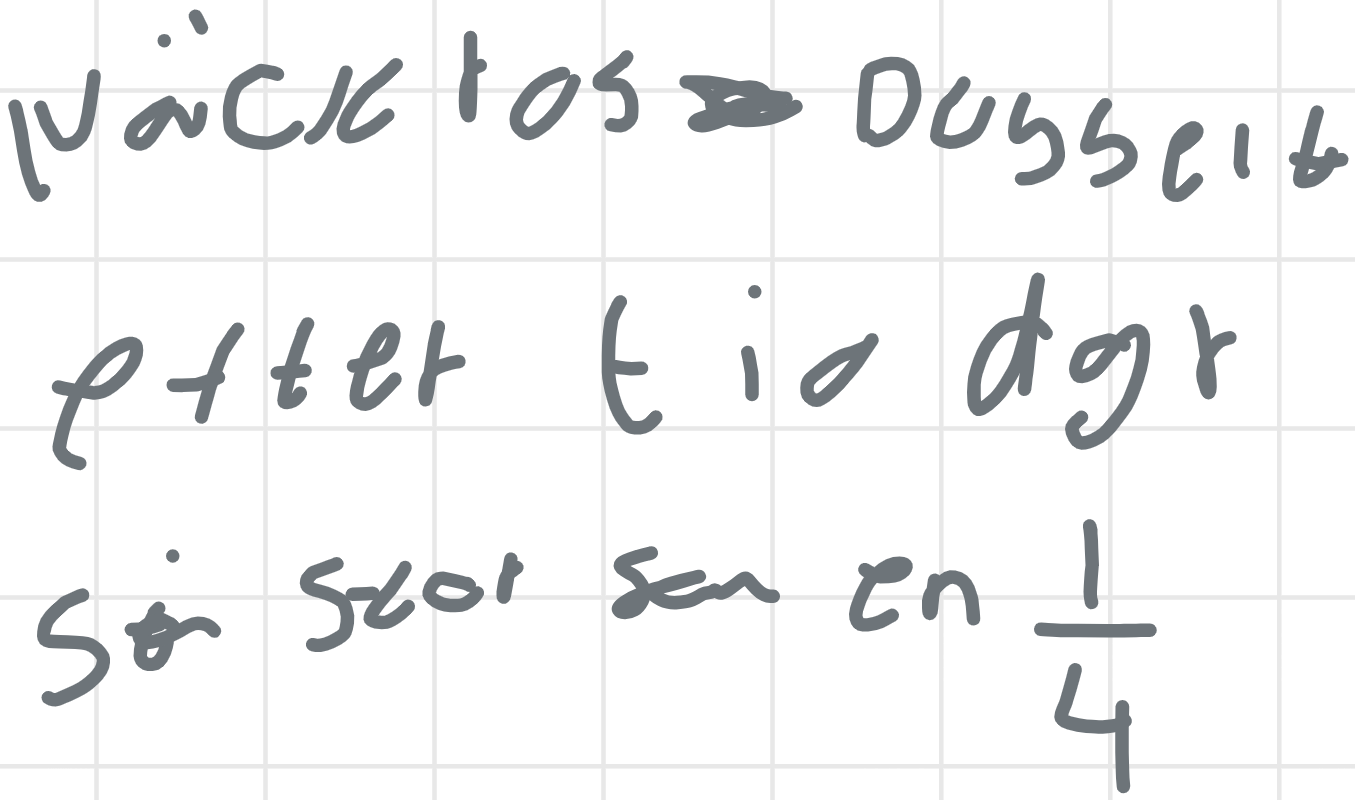 Näckros Dubbelt
efter tio dgr
Så stor sm en 1/4